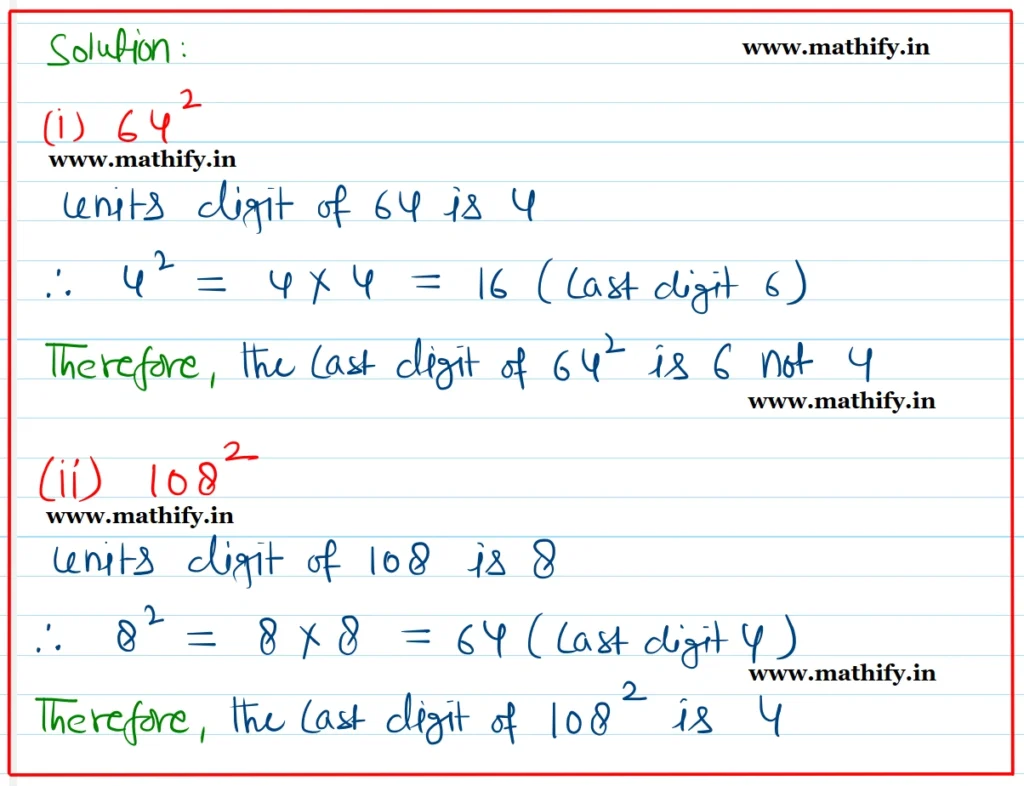 Solution:
www.mathify.in
(i) 64²
www.mathify.in
units digit of 64 is 4
∴ 4² = 4 × 4 = 16 (Last digit 6)
Therefore, the last digit of 64² is 6 not 4
www.mathify.in
(ii) 108²
www.mathify.in
units digit of 108 is 8
∴ 8² = 8 × 8 = 64 (Last digit 4)
www.mathify.in
Therefore, the last digit of 108² is 4